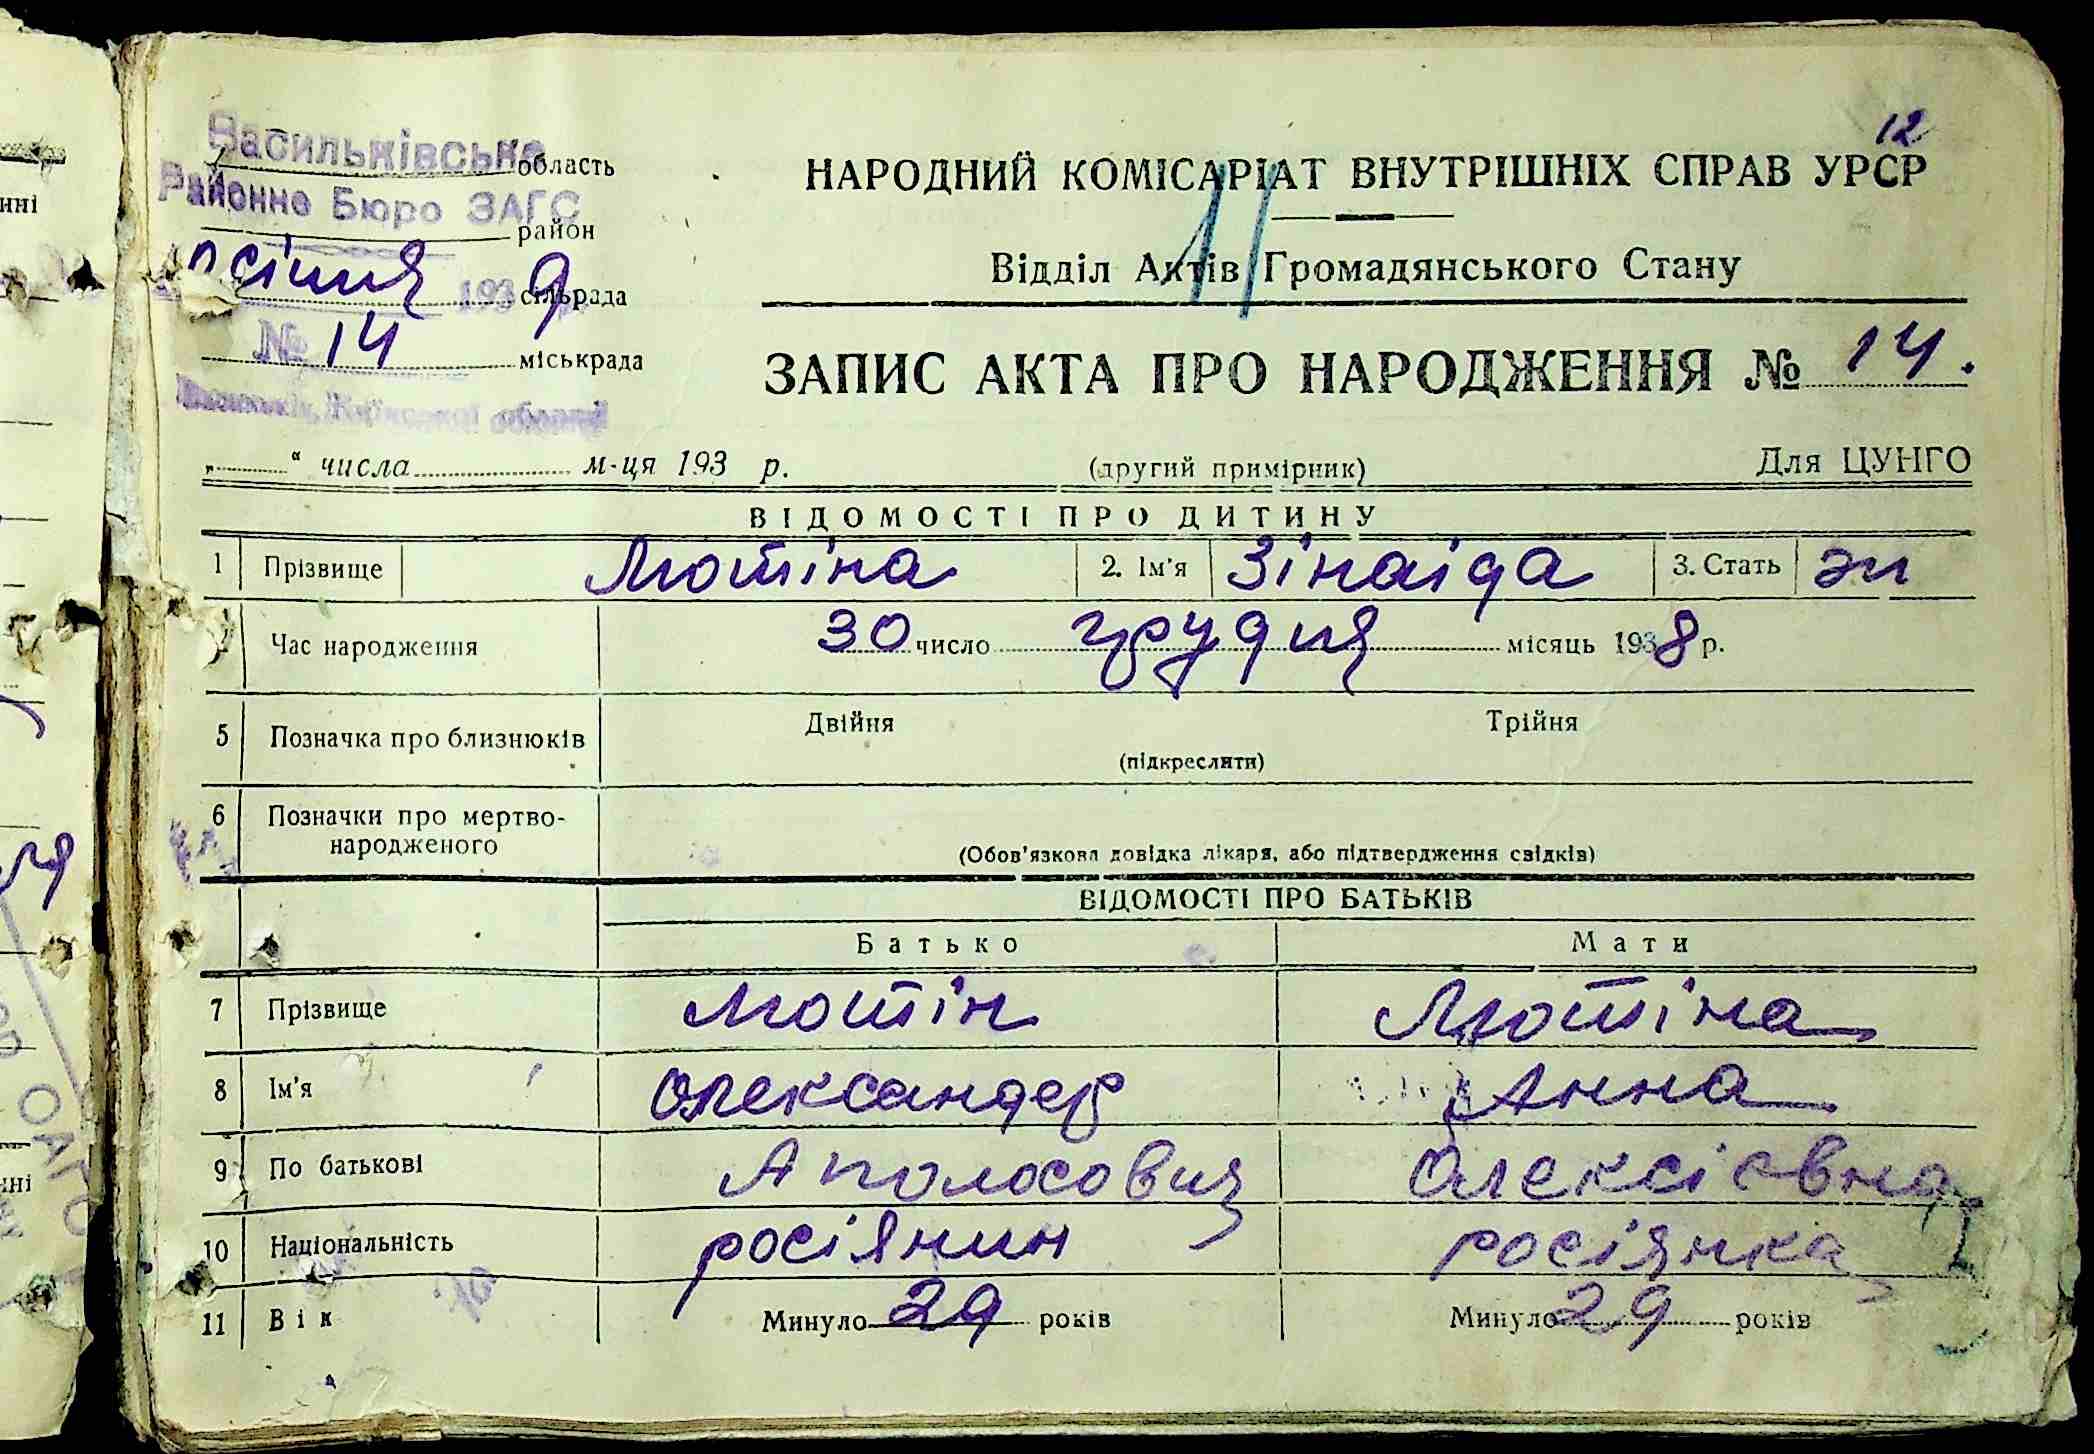 Васильківське область
Районне Бюро ЗАГС
район
січня 1939 сільрада
№ 14 міськрада
Київської області
12
НАРОДНИЙ КОМІСАРІАТ ВНУТРІШНІХ СПРАВ УРСР
11
Відділ Актів Громадянського Стану
ЗАПИС АКТА ПРО НАРОДЖЕННЯ № 14.
„ “ числа м-ця 193 р. (другий примірник) Для ЦУНГО
ВІДОМОСТІ ПРО ДИТИНУ
1 Прізвище Мотіна 2. Ім'я Зінаіда 3. Стать жн
Час народження 30 число грудня місяць 1938 р.
5 Позначка про близнюків Двійня Трійня
(підкреслити)
6 Позначки про мертво-
народженого
(Обов'язкова довідка лікаря, або підтвердження свідків)
ВІДОМОСТІ ПРО БАТЬКІВ
Батько Мати
7 Прізвище Мотін Мотіна
8 Ім'я Олександер Анна
9 По батькові Аполосович Олексієвна
10 Національність росіянин росіянка
11 Вік Минуло 29 років Минуло 29 років